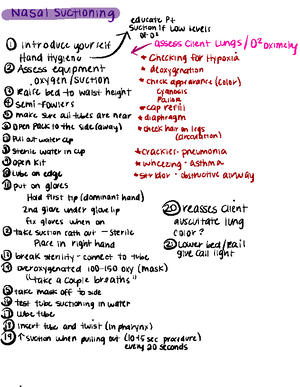 Nasal Suctioning
educate Pt
Suction if low levels
of O²
① introduce yourself
Hand Hygiene
② Assess equipment
oxygen/suction
③ Raise bed to waist height
④ Semi-fowlers
⑤ make sure all tubes are near
⑥ Open pack to the side (away)
⑦ Pull out water cup
⑧ Sterile water in cup
⑨ open kit
⑩ lube on edge
⑪ put on gloves
Hold first tip (dominant hand)
2nd glove under glove lip
fix gloves when on
⑫ take suction cath out - Sterile
Place in right hand
⑬ break sterility - connect to tube
⑭ overoxygenated 100-150 oxy (mask)
"take a couple breaths"
⑮ take mask off to side
⑯ test tube suctioning in water
⑰ lube tube
⑱ insert tube and twist (in pharynx)
⑲ ↑ suction when pulling out (10-15 sec procedure)
every 20 seconds
assess client Lungs / O² oximetry
* Checking for Hypoxia
* deoxygenation
* Check appearance (color)
Cyanosis
Pallor
* cap refill
* diaphragm
* check hair on legs
(circulation)
* crackles - pneumonia
* wheezing - asthma
* stridor - obstructive airway
⑳ reasses client
auscultate lung
color?
㉑ Lower bed/rail
give call light